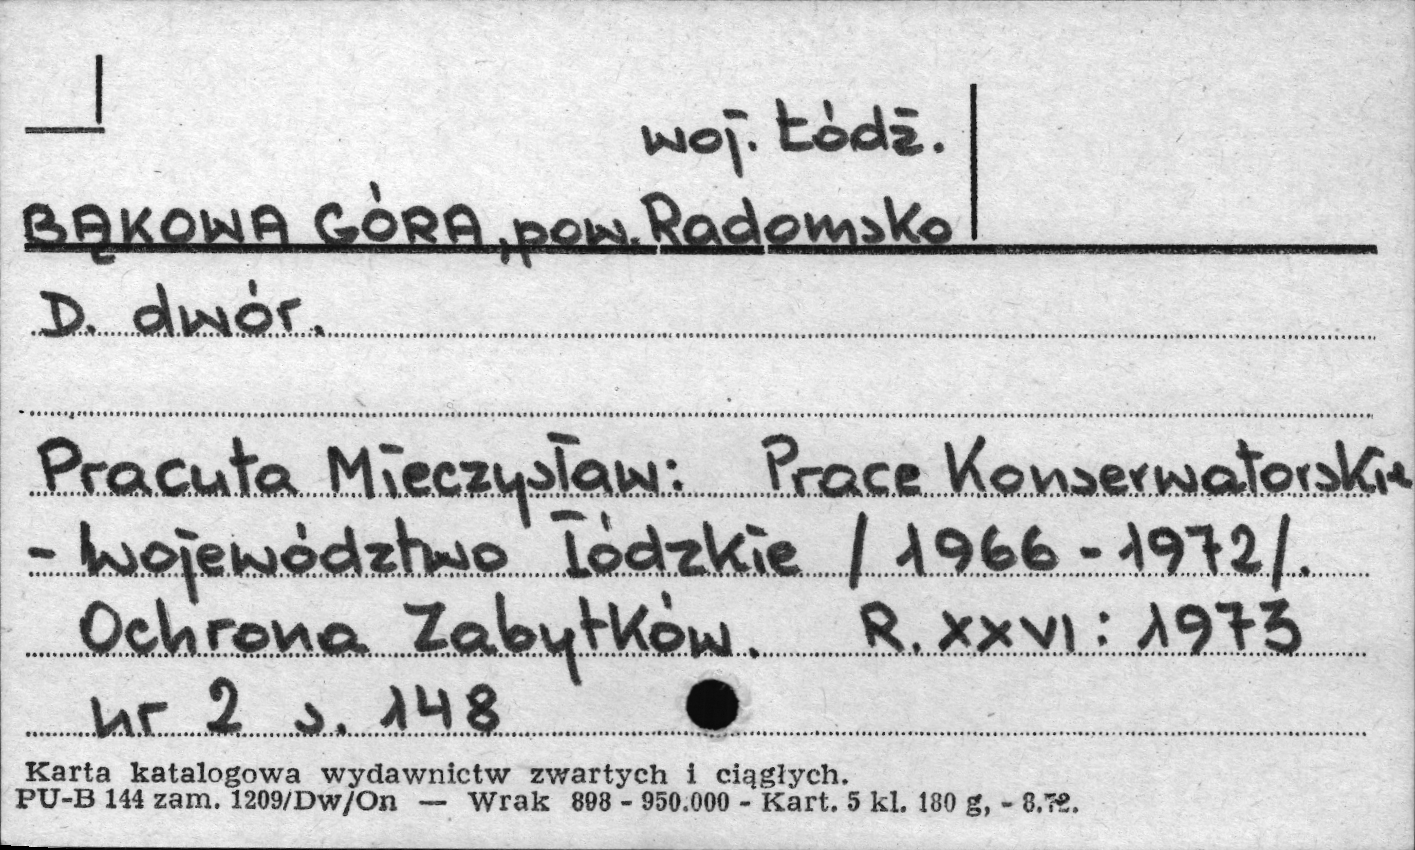 woj. Łódź.
BĄKOWA GÓRA, pow. Radomsko
D. dwór.
Pracuta Mieczysław: Prace Konserwatorskie
- Województwo Łódzkie /1966-1972/.
Ochrona Zabytków. R. XXVI: 1973
nr 2 s. 148
Karta katalogowa wydawnictw zwartych i ciągłych.
PU-B 144 zam. 1209/Dw/On — Wrak 898 - 950.000 - Kart. 5 kl. 180 g, - 8.72.